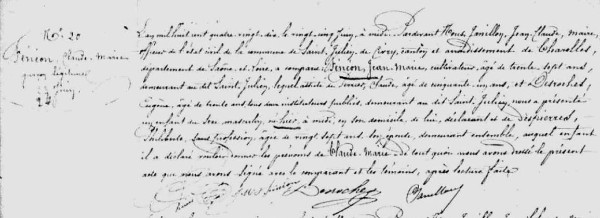 No. 20
Fénéon, Claude Marie
garçon légitime
L'an mil huit cent quatre vingt dix, le vingt cinq Juin, à midi. Pardevant Nous, Janillon, Jean Claude, maire,
officier de l'état civil de la commune de Saint Julien de Civry, canton et arrondissement de Charolles,
département de Saône et Loire, a comparu, Fénéon, Jean Marie, cultivateur, âgé de trente sept ans,
demeurant au dit Saint Julien, lequel assisté de Claude, âgé de cinquante un ans, et Desroches,
Eugène, âgé de trente ans, tous deux instituteurs publics, demeurant au dit Saint Julien, nous a présenté
un enfant du sexe masculin, né hier, à midi, en son domicile, de lui, déclarant et de Despierres,
Philiberte, sans profession, âgée de vingt sept ans, son épouse, demeurant ensemble, auquel enfant
il a déclaré vouloir donner les prénoms de Claude Marie de tout quoi nous avons dressé le présent
acte que nous avons signé avec le comparant et les témoins, après lecture faite.
Desroches